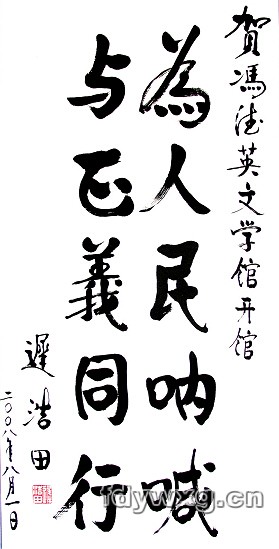 贺馮德英文学馆开馆
為人民呐喊
与正義同行
遲浩田
二〇〇八年八月一日
fdywxg.cn